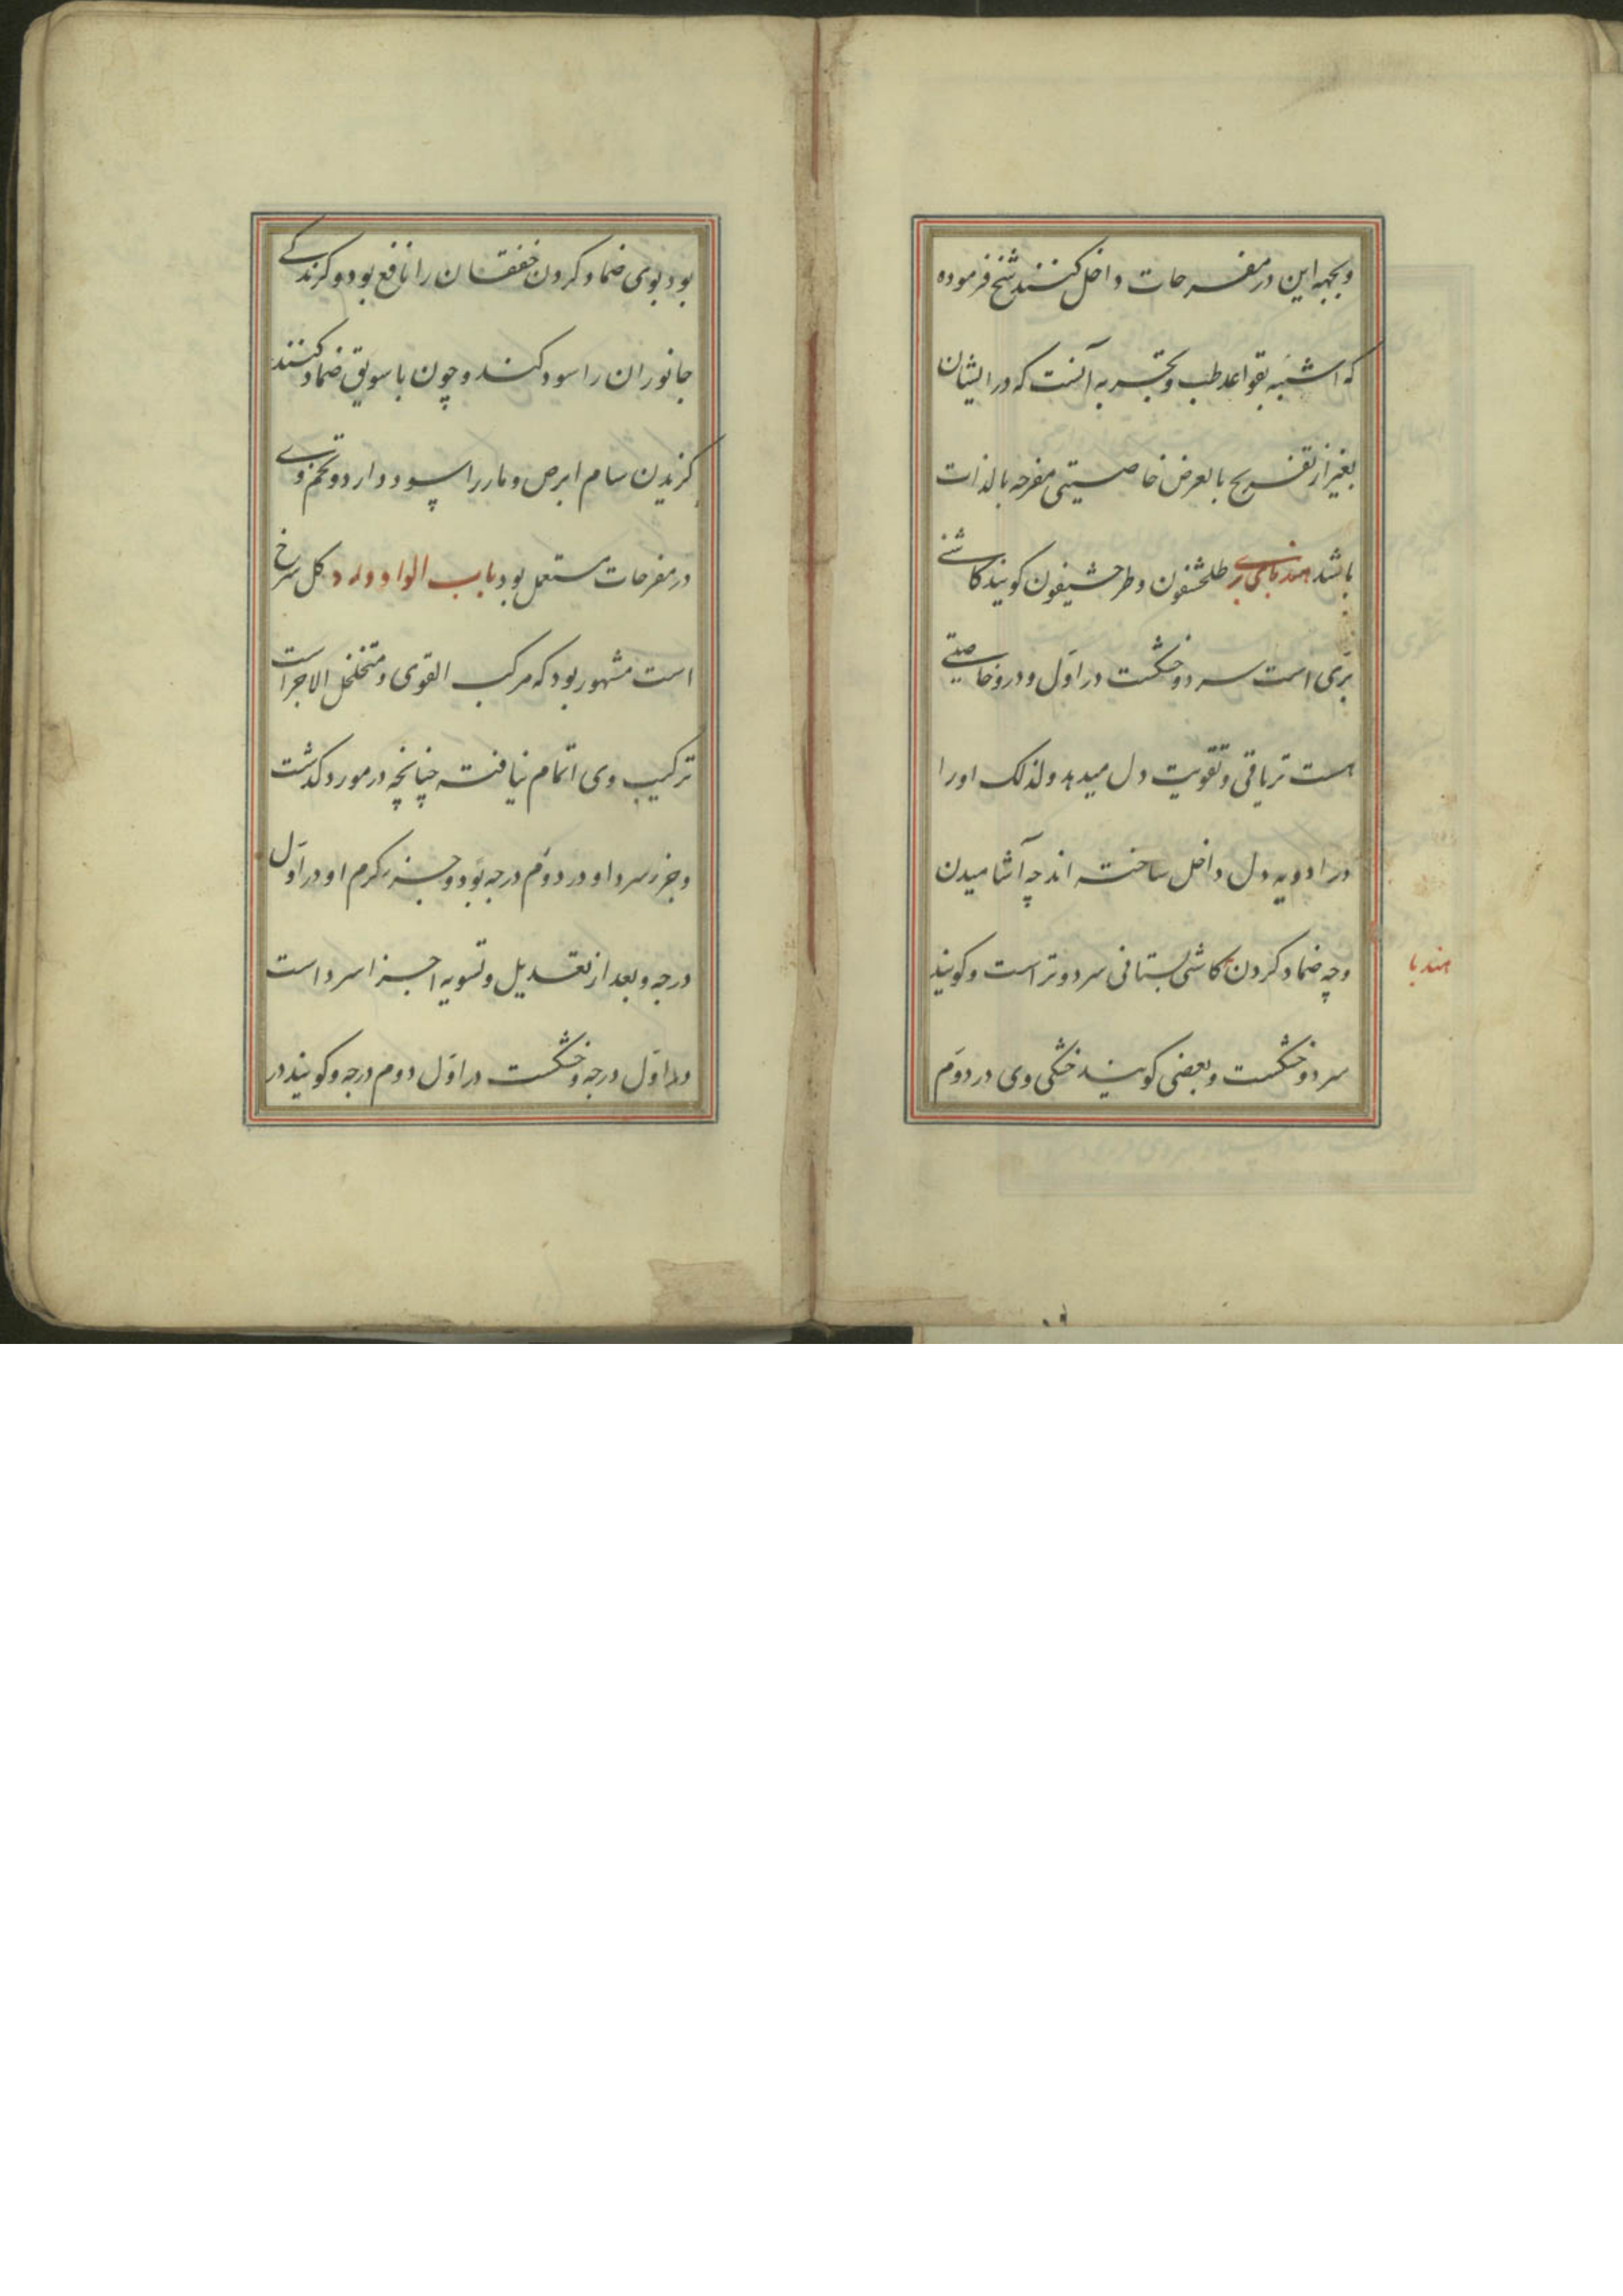 وبجهه این در مفرحات داخل کنند شیخ فرموده
که اشبه بقواعد طب وتجربه آنست که در ایشان
بغیر از تفریح بالعرض خاصیتی مفرحه بالذات
باشد هندبای بری طلخشقون وطرخشیقون کویند کاشنی
بری است سرد وخشکست در اول ودرو خاصیتی
هست تریاقی وتقویت دل میدهد ولذلک اورا
در ادویه دل داخل ساخته اند چه آشامیدن
وچه ضماد کردن کاشنی بستانی سرد وتر است وکویند
هندبا
سرد وخشکست وبعضی کویند خشکی وی در دوم
بود بوی ضماد کردن خفقان را نافع بود وکزندکی
جانوران را سود کند وچون با سویق ضماد کنند
کزیدن سام ابرص ومار را سود دارد وتخم وی
در مفرحات مستعمل بود باب الواو ورد کل سرخ
است مشهور بود که مرکب القوی ومتخلخل الاجزاست
ترکیب وی اتمام نیافته چنانچه در مورد کذشت
وجزء سرد او در دوم درجه بود وجزء کرم او در اول
درجه وبعد از تعدیل وتسویه اجزا سرد است
در اول درجه وخشکست در اول دوم درجه وکویند در